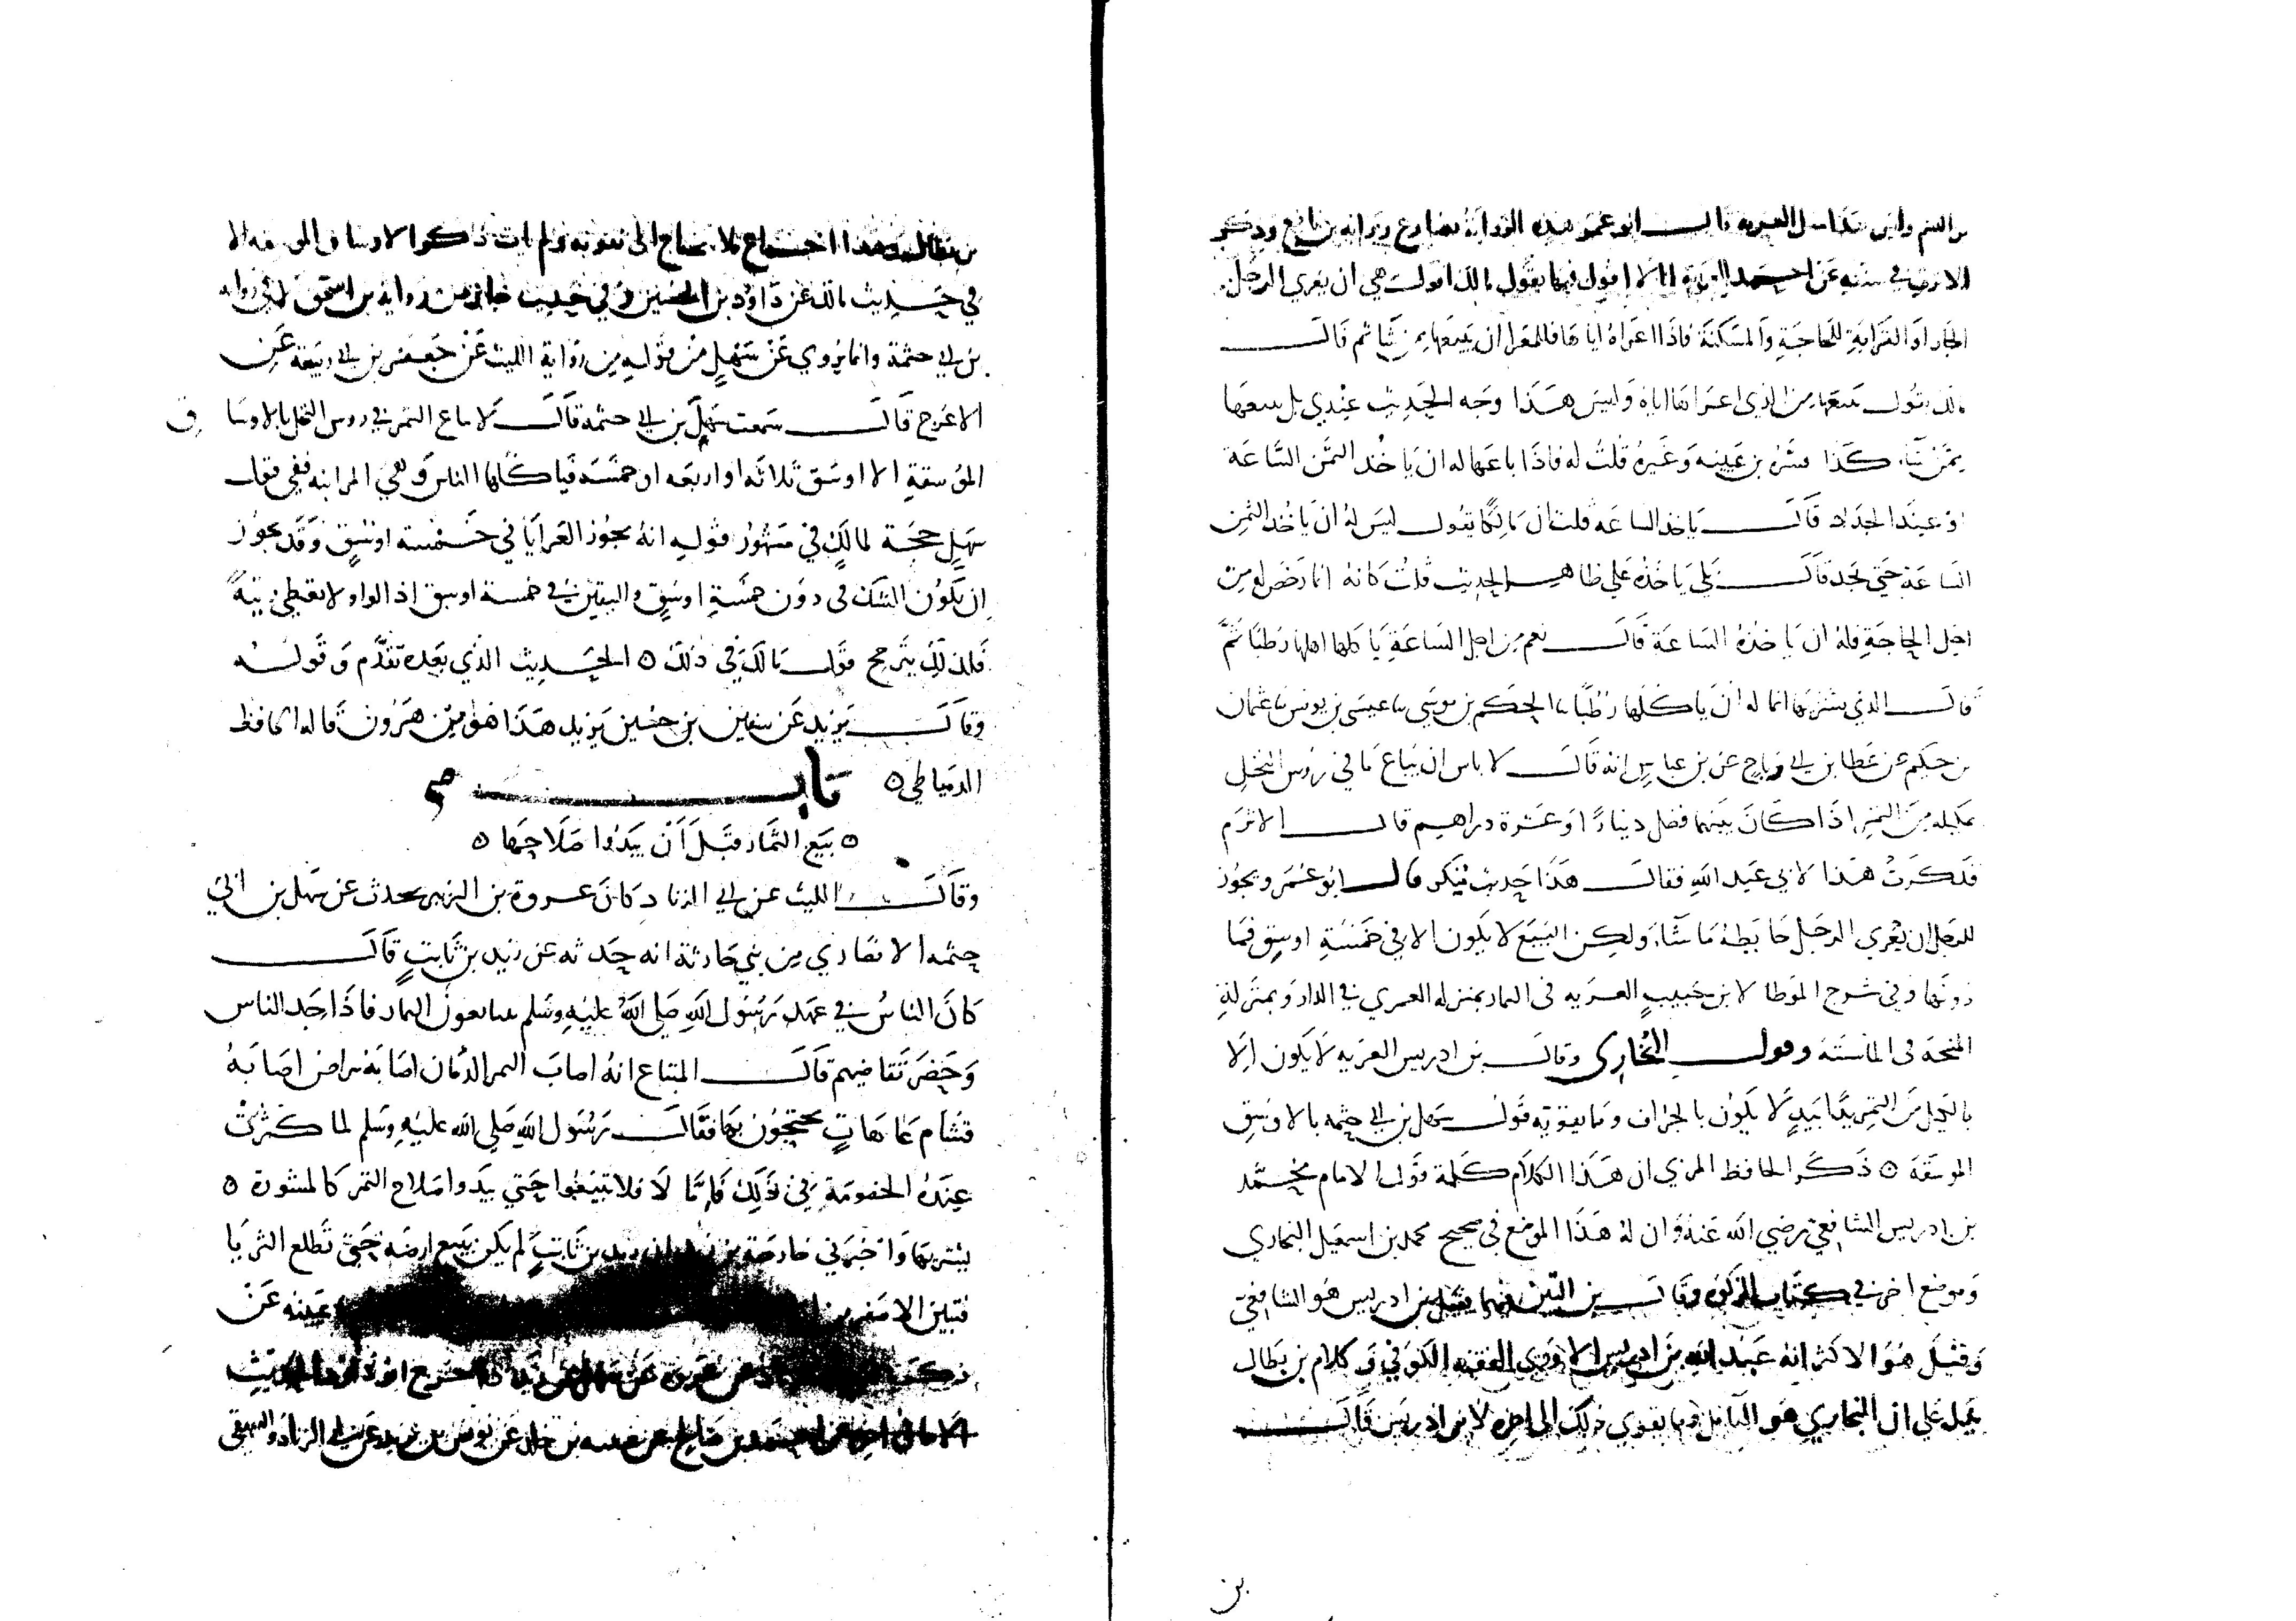 من التمر وليس هذا من العرية قال أبو عمر هذه الرواية تضارع رواية بن نافع وذكر
الاثرم في سننه عن احمد انا لا اقول فيها بقول مالك اقول هي ان يعري الرجل
الجار او القرابة للحاجة والمسكنة فاذا اعراه اياها فللمعرا ان يبيعها ممن شا ثم قال
مالك يقول يبيعها من الذي اعراها اياه وليس هذا وجه الحديث عندي بل يبيعها
ممن شا كذا فسره بن عيينه وغيره قلت له فاذا باعها له ان ياخذ الثمن الساعة
او عند الجداد قال ياخذ الساعه قلت ان مالكا يقول ليس له ان ياخذ الثمن
الساعة حتى يجد قال بلي ياخذه علي ظاهر الحديث قلت كانه انما رخص له من
اجل الحاجة فله ان ياخذه الساعة قال نعم من اجل الساعة ياكلها اهلها رطبا ثم
قال الذي يشتريها انما له ان ياكلها رطبا نا الحكم بن موسي نا عيسي بن يونس نا عثمان
بن حكيم عن عطا بن ابي رباح عن بن عباس انه قال لا باس ان يباع ما في روس النخل
بمكيله من التمر اذا كان بينهما فضل دينارا او عشرة دراهيم قال الاثرم
فذكرت هذا لابي عبد الله فقال هذا حديث منكر قال ابو عمر ويجوز
للرجل ان يعري الرجل حايطه ما شا ولكن البيع لا يكون الا في خمسة اوسق فما
دونها وفي شرح الموطا لابن حبيب العريه في الثمار بمنزله العمري في الدار وبمنزلة
المنحة في الماشية وقول البخاري وقال بن ادريس العريه لا يكون الا
بالكيل من التمر يدا بيد لا يكون بالجزاف ومما يقويه قول سهل بن ابي حثمه بالاوسق
الموسقة ٥ ذكر الحافظ المزي ان هذا الكلام كلمة قول الامام محمد
بن ادريس الشافعي رضي الله عنه وان له هذا الموضع في صحيح محمد بن اسمعيل البخاري
وموضع اخر في كتاب الزكوه وقال بن التين فيهما قيل بن ادريس هو الشافعي
وقيل هو الاكثر انه عبد الله بن ادريس الاودي الفقيه الكوفي وكلام بن بطال
يدل علي ان البخاري هو القايل ومما يقوي ذلك الى اخره لا بن ادريس قال
بن
بن بطال وهذا اجماع فلا يحتاج الى تقويه ولم يات ذكر الاوساق الموسقه الا
في حديث مالك عن داود بن الحصين وفي حديث جابر من رواية بن اسحق لا في رواية
بن ابي حثمة وانما يروي عن سهل من قوله من رواية الليث عن جعفر بن ابي ربيعة عن
الاعرج قال سمعت سهل بن ابي حثمة قال لا يباع الثمر في روس النخل بالاوساق
الموسقة الا اوسق ثلاثه او اربعه او خمسة ياكلها الناس وهي المزابنه ففي قول
سهل حجة لمالك في مشهور قوله انه يجوز العرايا في خمسة اوسق وقد يجوز
ان يكون الشك في دون خمسة اوسق واليقين في خمسة اوسق اذ الواو لا تعطي رتبة
فلذلك يترجح قول مالك في ذلك ٥ الحديث الذي بعده تقدم وقوله
وقال يزيد عن سفين بن حسين يزيد هذا هو بن هرون قاله الحافظ
الدمياطي ٥ باب
٥ بيع الثمار قبل أن يبدوا صلاحها ٥
وقال الليث عن ابي الزناد كان عروة بن الزبير يحدث عن سهل بن ابي
حثمه الانصاري من بني حارثة انه حدثه عن زيد بن ثابت قال
كان الناس في عهد رسول الله صلي الله عليه وسلم يتبايعون الثمار فاذا جد الناس
وحضر تقاضيهم قال المبتاع انه اصاب الثمر الدمان اصابه مراض اصابه
قشام عاهات يحتجون بها فقال رسول الله صلي الله عليه وسلم لما كثرت
عنده الخصومة في ذلك فاما لا فلا تبيعوا حتي يبدوا صلاح الثمر كالمشورة ٥
يشير بها واخبرني خارجة بن زيد ان زيد بن ثابت لم يكن يبيع ارضه حتى تطلع الثريا
فتبين الاصفر من عيينه عن
عن عروة عن سهل عن زيد الحديث
احمد بن صالح عن عنبسه بن خالد عن يونس بن يزيد عن ابي الزناد والبيهقي